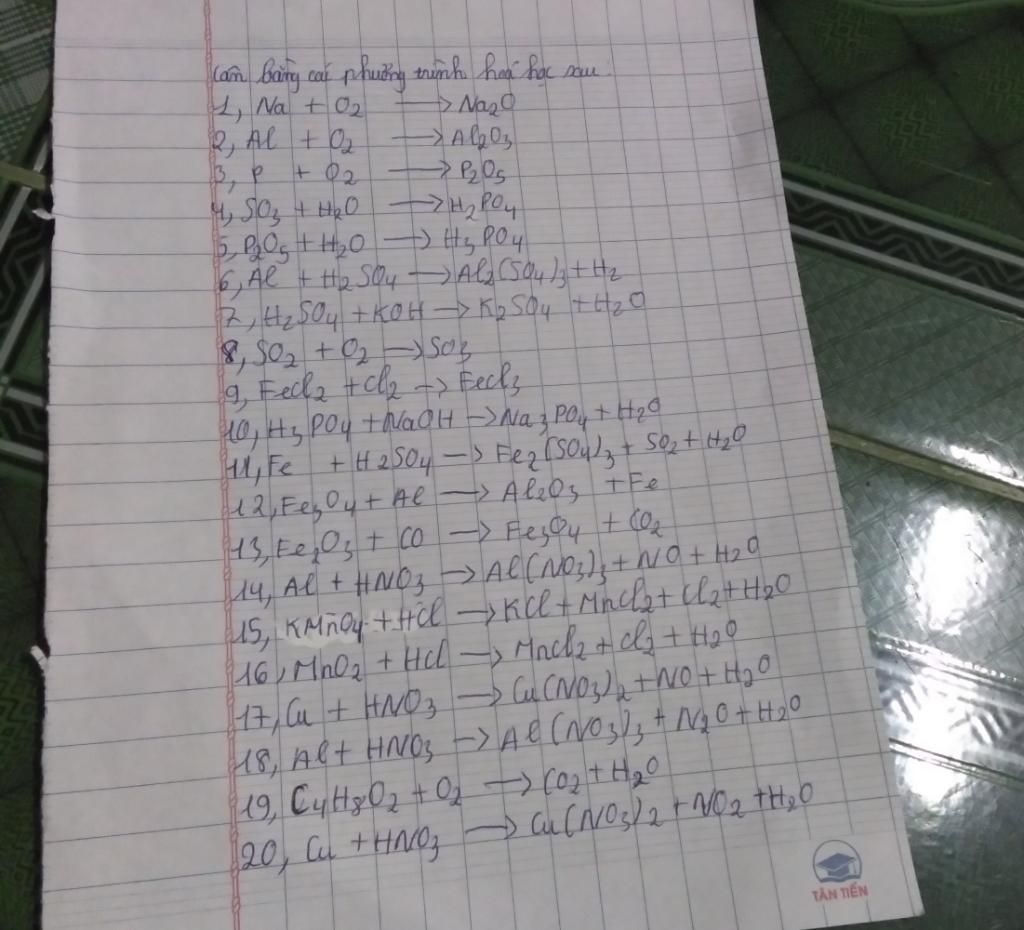 Cân bằng các phương trình hoá học sau:
1, Na + O2 → Na2O
2, Al + O2 → Al2O3
3, P + O2 → P2O5
4, SO3 + H2O → H2PO4
5, P2O5 + H2O → H3PO4
6, Al + H2SO4 → Al2(SO4)3 + H2
7, H2SO4 + KOH → K2SO4 + H2O
8, SO2 + O2 → SO3
9, FeCl2 + Cl2 → FeCl3
10, H3PO4 + NaOH → Na3PO4 + H2O
11, Fe + H2SO4 → Fe2(SO4)3 + SO2 + H2O
12, Fe3O4 + Al → Al2O3 + Fe
13, Fe2O3 + CO → Fe3O4 + CO2
14, Al + HNO3 → Al(NO3)3 + NO + H2O
15, KMnO4 + HCl → KCl + MnCl2 + Cl2 + H2O
16, MnO2 + HCl → MnCl2 + Cl2 + H2O
17, Cu + HNO3 → Cu(NO3)2 + NO + H2O
18, Al + HNO3 → Al(NO3)3 + N2O + H2O
19, C4H8O2 + O2 → CO2 + H2O
20, Cu + HNO3 → Cu(NO3)2 + NO2 + H2O
TÂN TIẾN